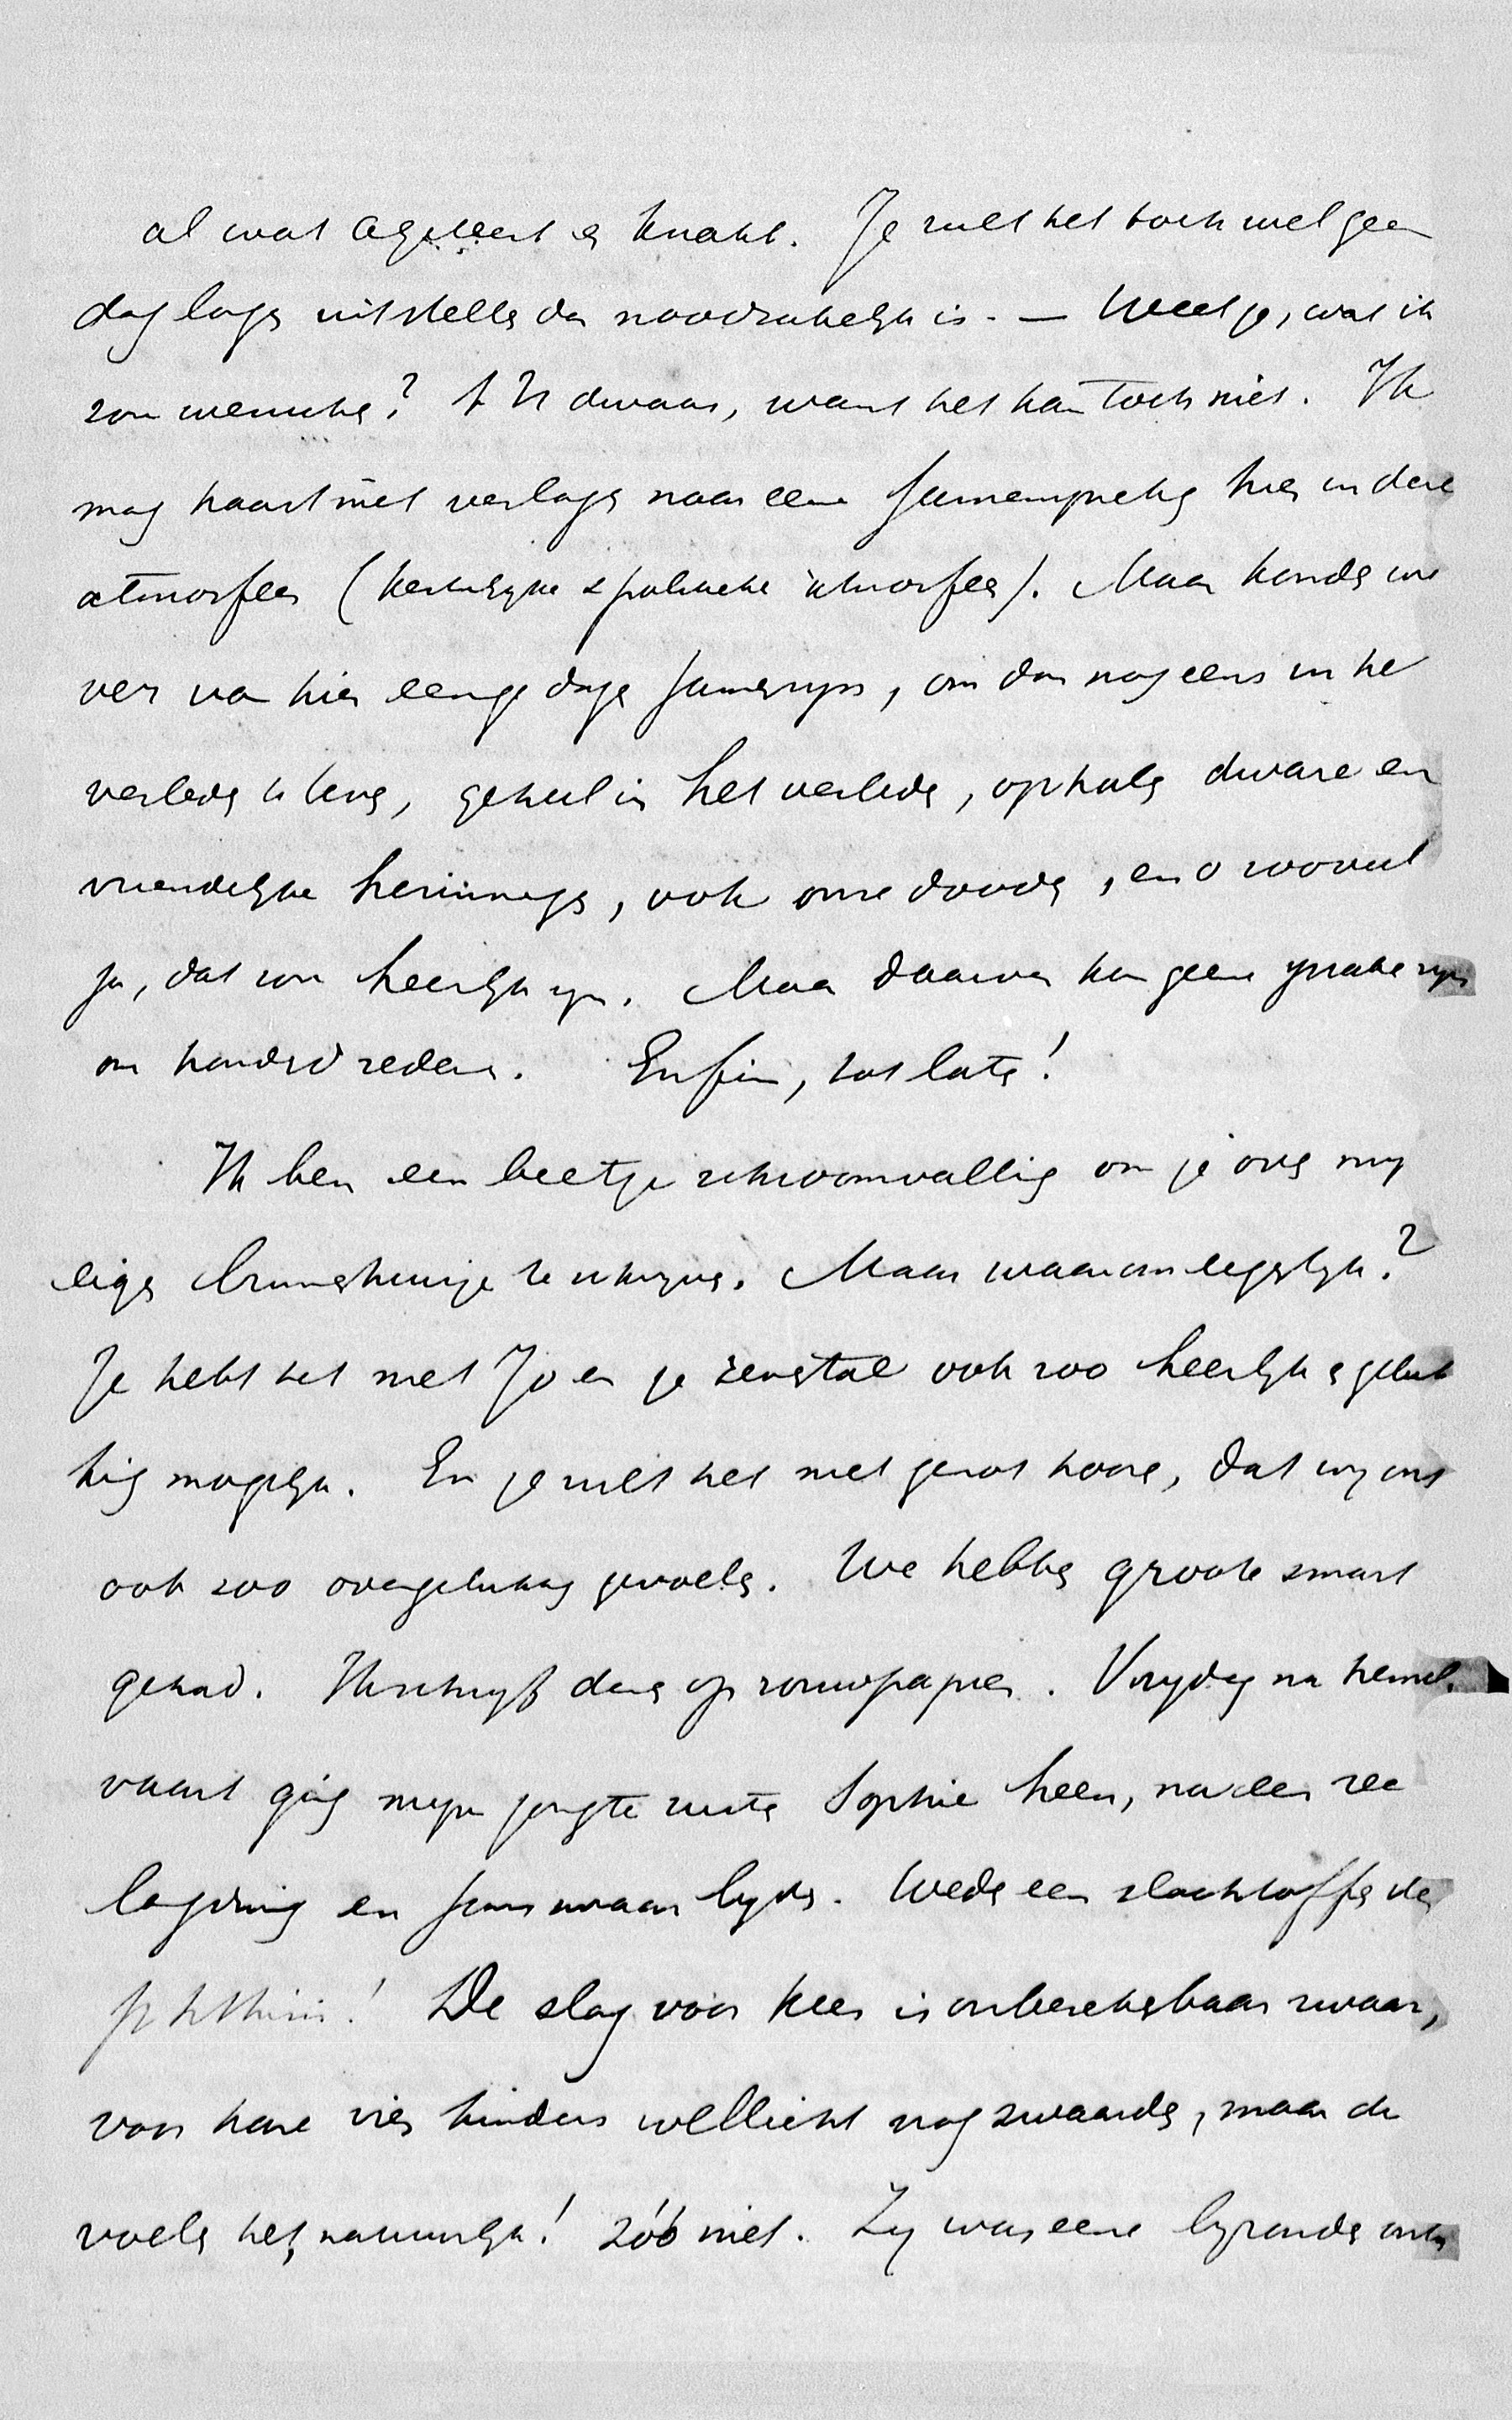 al wat ageert en knakt. Je zult het toch wel geen
dag langer uitstellen dan noodzakelijk is. — Weet je, wat ik
zou wenschen? 't Is dwaas, want het kan toch niet. Ik
mag haast niet verlangen naar eene samenspreking hier in deze
atmosfeer (kerkelijke & politieke atmosfeer). Maar konden we
ver van hier eenige dagen samenzijn, om dan nog eens in het
verleden te leven, geheel in het verleden, ophalen dwaze en
vriendelijke herinneringen, ook onze dooden, en o zooveel
ja, dat zou heerlijk zijn. Maar daarvan kan geen sprake zijn
om honderd redenen. Enfin, tot later!
Ik ben een beetje schroomvallig om je over mijn
eigen binnenhuisje te schrijven. Maar waarom eigenlijk?
Je hebt het met Jo en je zevental ook zoo heerlijk en geluk
kig mogelijk. En je zult het met genot hooren, dat wij ons
ook zoo overgelukkig gevoelen. We hebben groote smart
gehad. Ik schrijf deze op rouwpapier. Vrijdag na hemel.
vaart ging mijn jongste zuster Sophie heen, na een zee
langdurig en zwaar lijden. Weder een slachtoffer der
phthisis! De slag voor Kees is onberekenbaar zwaar,
voor hare vier kinders wellicht nog zwaarder, maar die
voelen het, natuurlijk! zóó niet. Zij was eene bijzondere